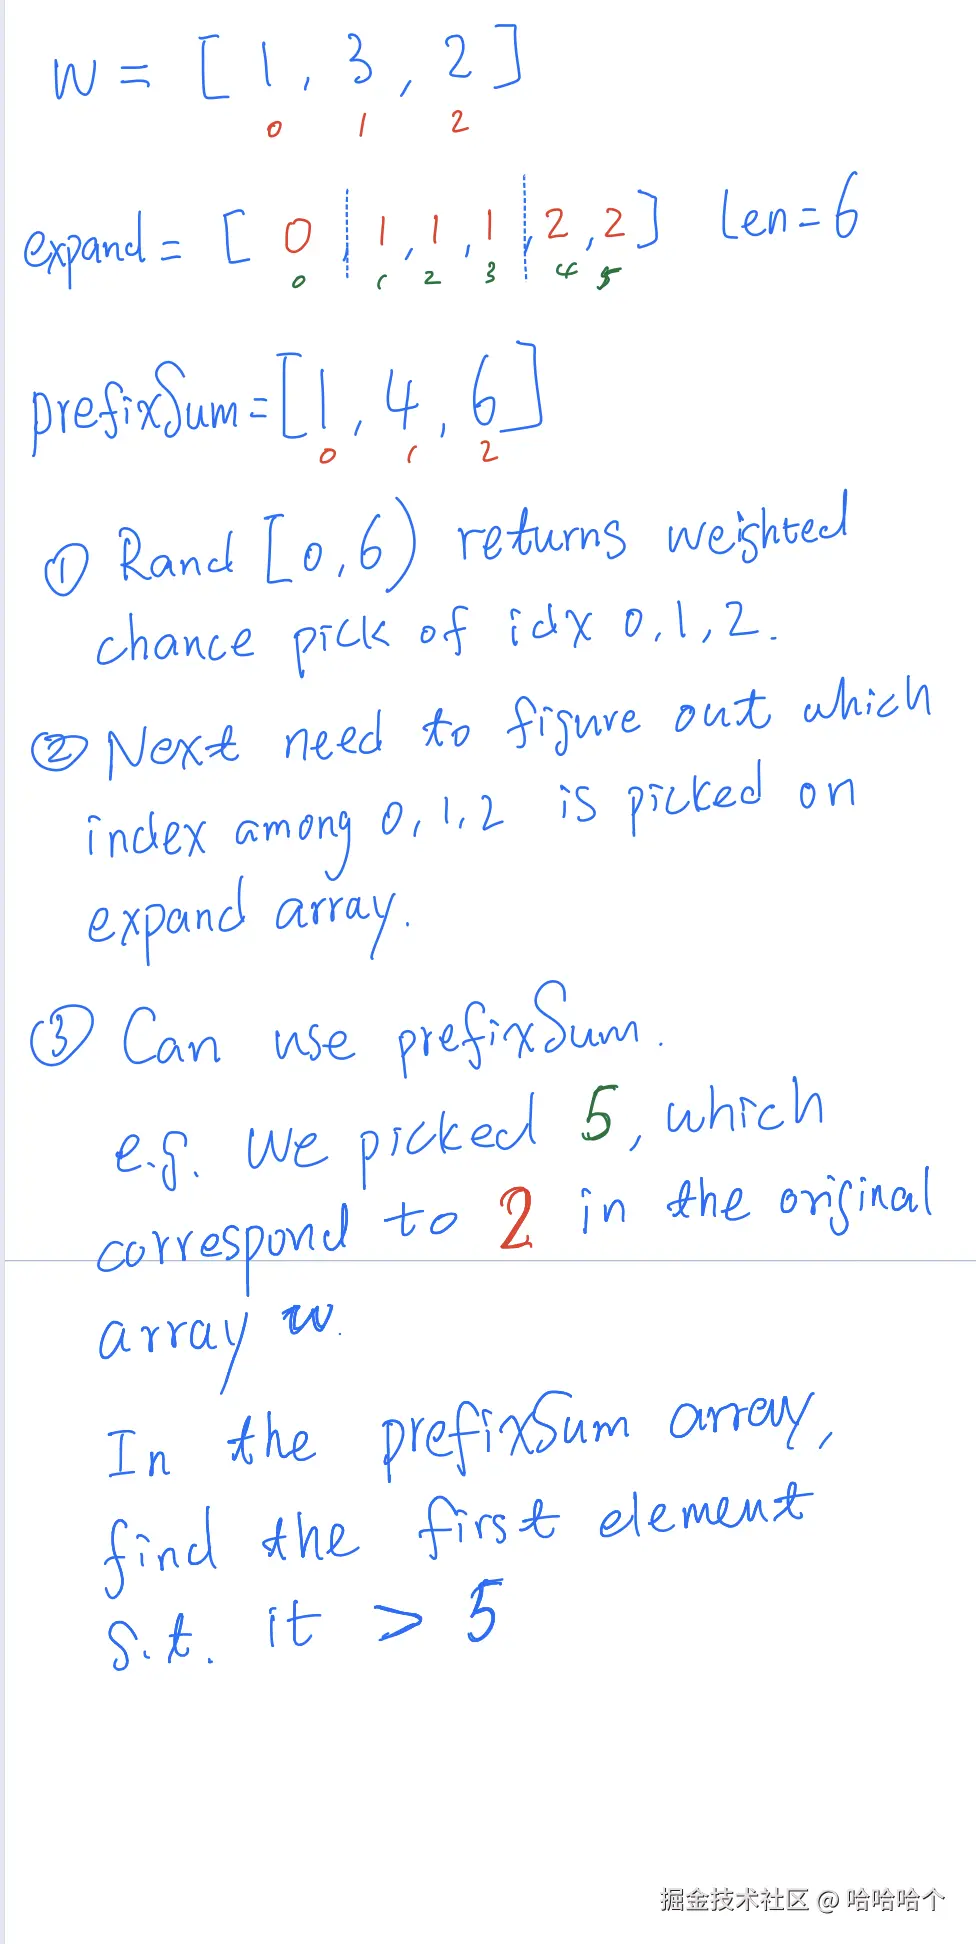 w = [ 1 , 3 , 2 ]
0 1 2
expand = [ 0 , 1 , 1 , 1 , 2 , 2 ] len = 6
0 1 2 3 4 5
prefixSum = [ 1 , 4 , 6 ]
0 1 2
① Rand [0,6) returns weighted
chance pick of idx 0,1,2.
② Next need to figure out which
index among 0,1,2 is picked on
expand array.
③ Can use prefixSum.
e.g. we picked 5, which
correspond to 2 in the original
array w.
In the prefixSum array,
find the first element
s.t. it > 5
掘金技术社区 @ 哈哈哈个